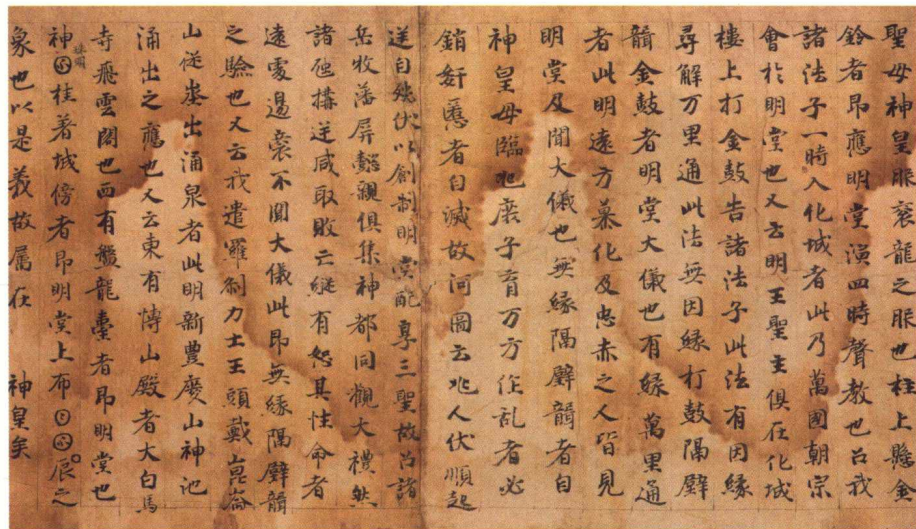 聖母神皇服袞龍之服也柱上懸金
鈴者即應明堂演四時聲教也召我
諸法子一時入化城者此乃萬國朝宗
會於明堂也又云明王聖主俱在化城
樓上打金鼓告諸法子此法有因緣
尋解万里通此法無因緣打鼓隔壁
聾金鼓者明堂大儀也有緣萬里通
者此明遠方慕化及忠赤之人皆見
明堂及聞大儀也無緣隔壁聾者自
神皇母臨兆庶子育万方作乱者必
銷奸慝者自滅故河圖云兆人伏順起
逆自殃伏以創制明堂配享三聖故召諸
岳牧藩屏懿親俱集神都同觀大禮然
諸虺搆逆咸取敗亡縱有恕其性命者
遠處邊裔不聞大儀此即無緣隔壁聾
之驗也又云我遣羅剎力士王頭戴崑崙
山從出涌泉者此明新豐慶山神池
涌出之應也又云東有博山殿者大白馬
寺飛雲閣也西有盤龍臺者即明堂也
神囝桂著城傍者即明堂上布𡆠囝扆之
象也以是義故属在 神皇矣